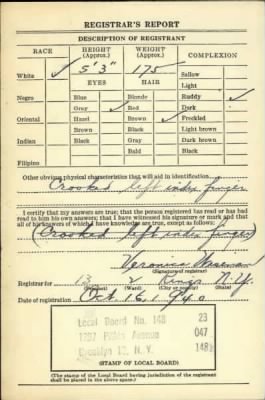 REGISTRAR'S REPORT
DESCRIPTION OF REGISTRANT
RACE HEIGHT (Approx.) WEIGHT (Approx.) COMPLEXION
White ✓ 5' 3" 175 Sallow
EYES HAIR Light
Negro Blue Blonde Ruddy ✓
Gray ✓ Red ✓ Dark
Oriental Hazel Brown Freckled
Brown Black Light brown
Indian Black Gray Dark brown
Bald Black
Filipino
Other obvious physical characteristics that will aid in identification
Crooked left index finger
I certify that my answers are true; that the person registered has read or has had
read to him his own answers; that I have witnessed his signature or mark and that
all of his answers of which I have knowledge are true, except as follows:
(Crooked left index finger)
Veronica
(Signature of registrar)
Registrar for 13 2 Kings N.Y.
(Precinct) (Ward) (City or county) (State)
Date of registration Oct. 16, 1940
Local Board No. 148 23
Avenue 047
Brooklyn N. Y. 148
(STAMP OF LOCAL BOARD)
(The stamp of the Local Board having jurisdiction of the registrant
shall be placed in the above space.)